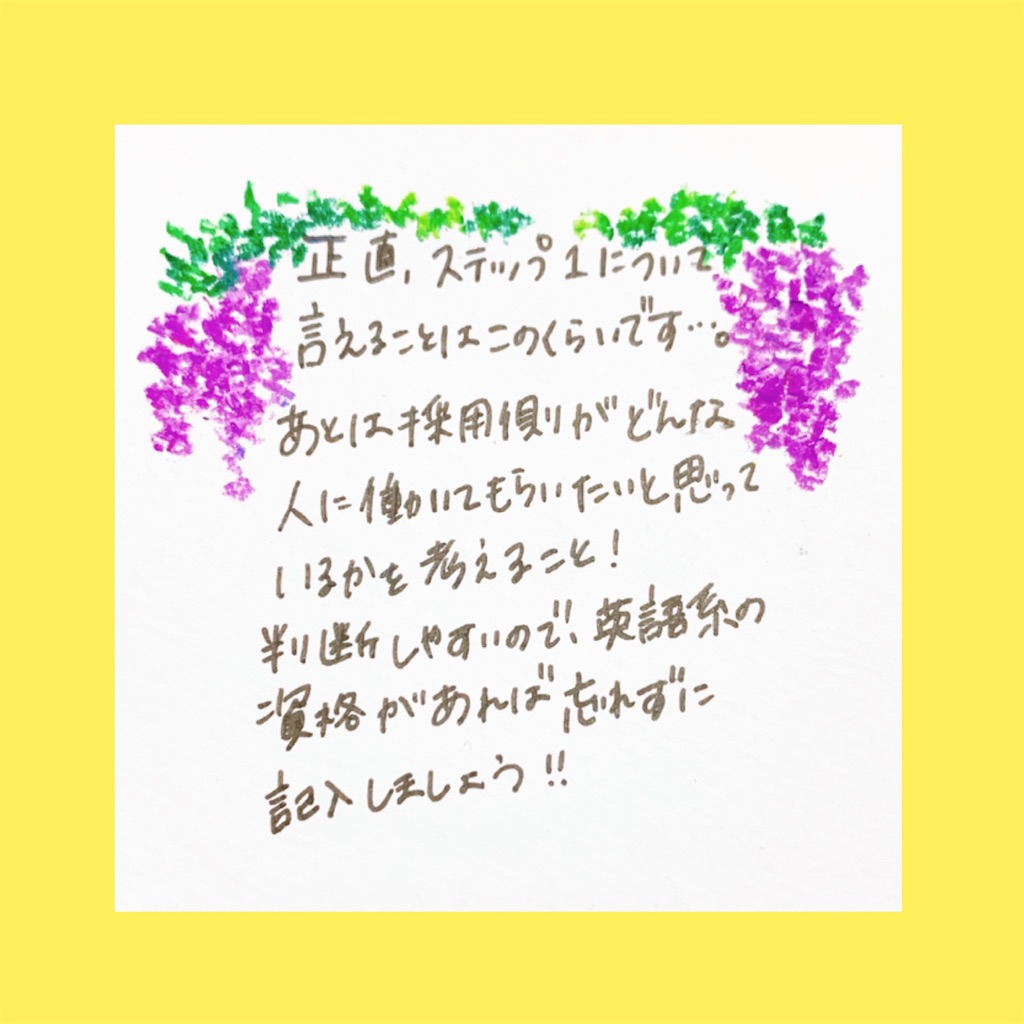 正直,ステップ1について
言えることはこのくらいです…。
あとは採用側がどんな
人に働いてもらいたいと思って
いるかを考えること!
判断しやすいので、英語系の
資格があれば忘れずに
記入しましょう!!